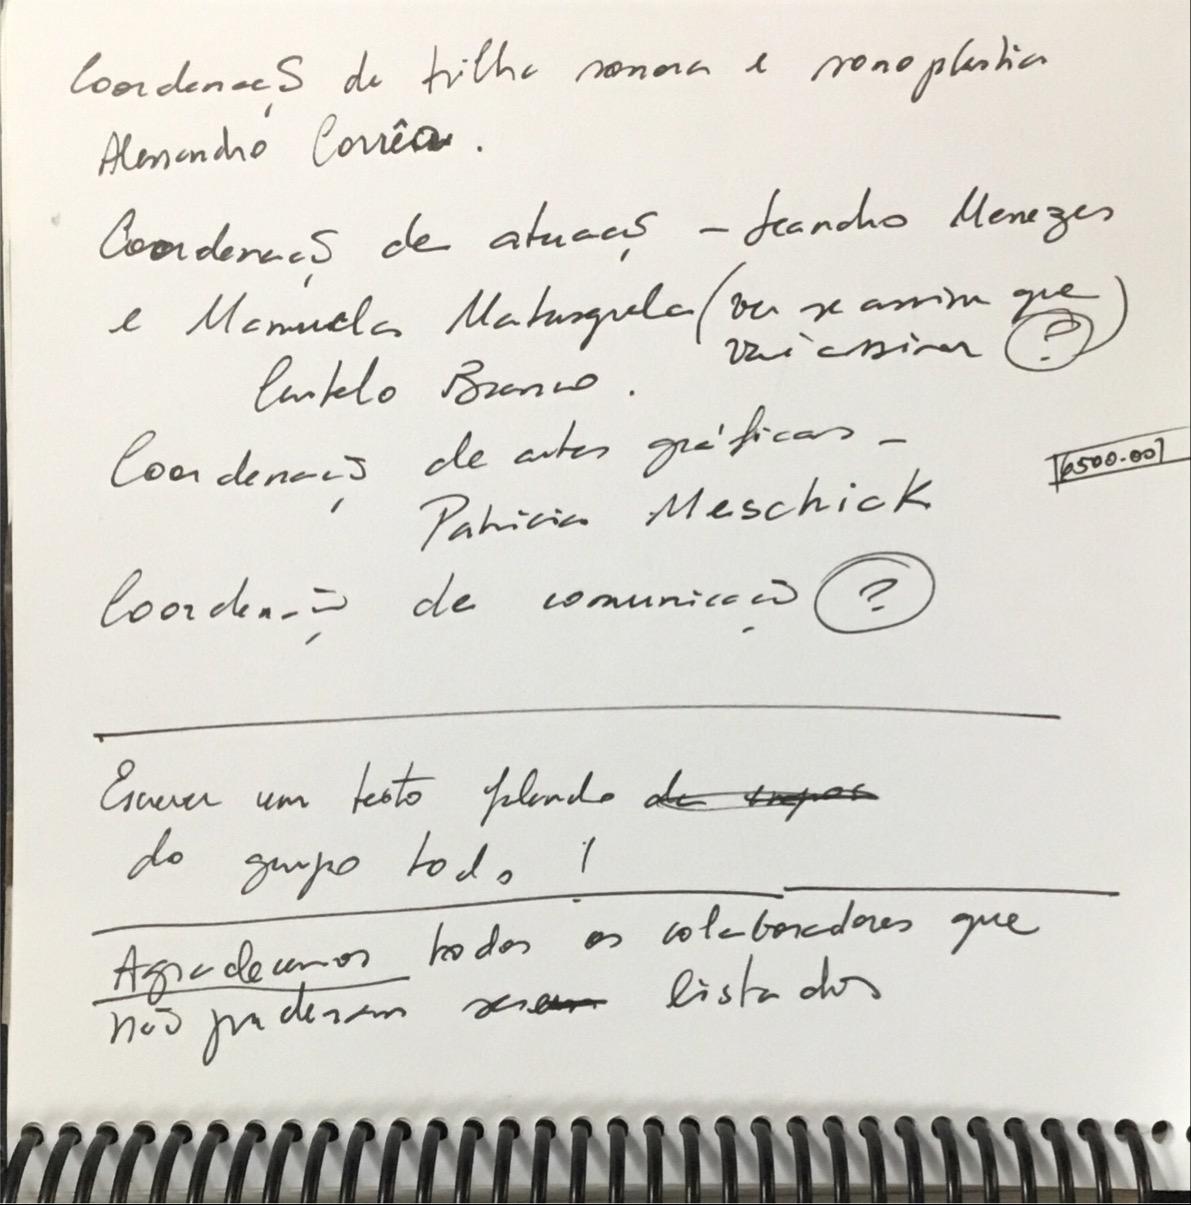 Coordenação de trilha sonora e sonoplastia
Alessandro Corrêa.
Coordenação de atuação - Leandro Menezes
e Manuela Matusquela (ver se assim que
vai assinar ?)
Castelo Branco.
Coordenação de artes gráficas -
6500.00
Patricia Meschick
Coordenação de comunicação ?
Escrever um texto falando de
do grupo todo!
Agradecemos todos os colaboradores que
não puderam listados